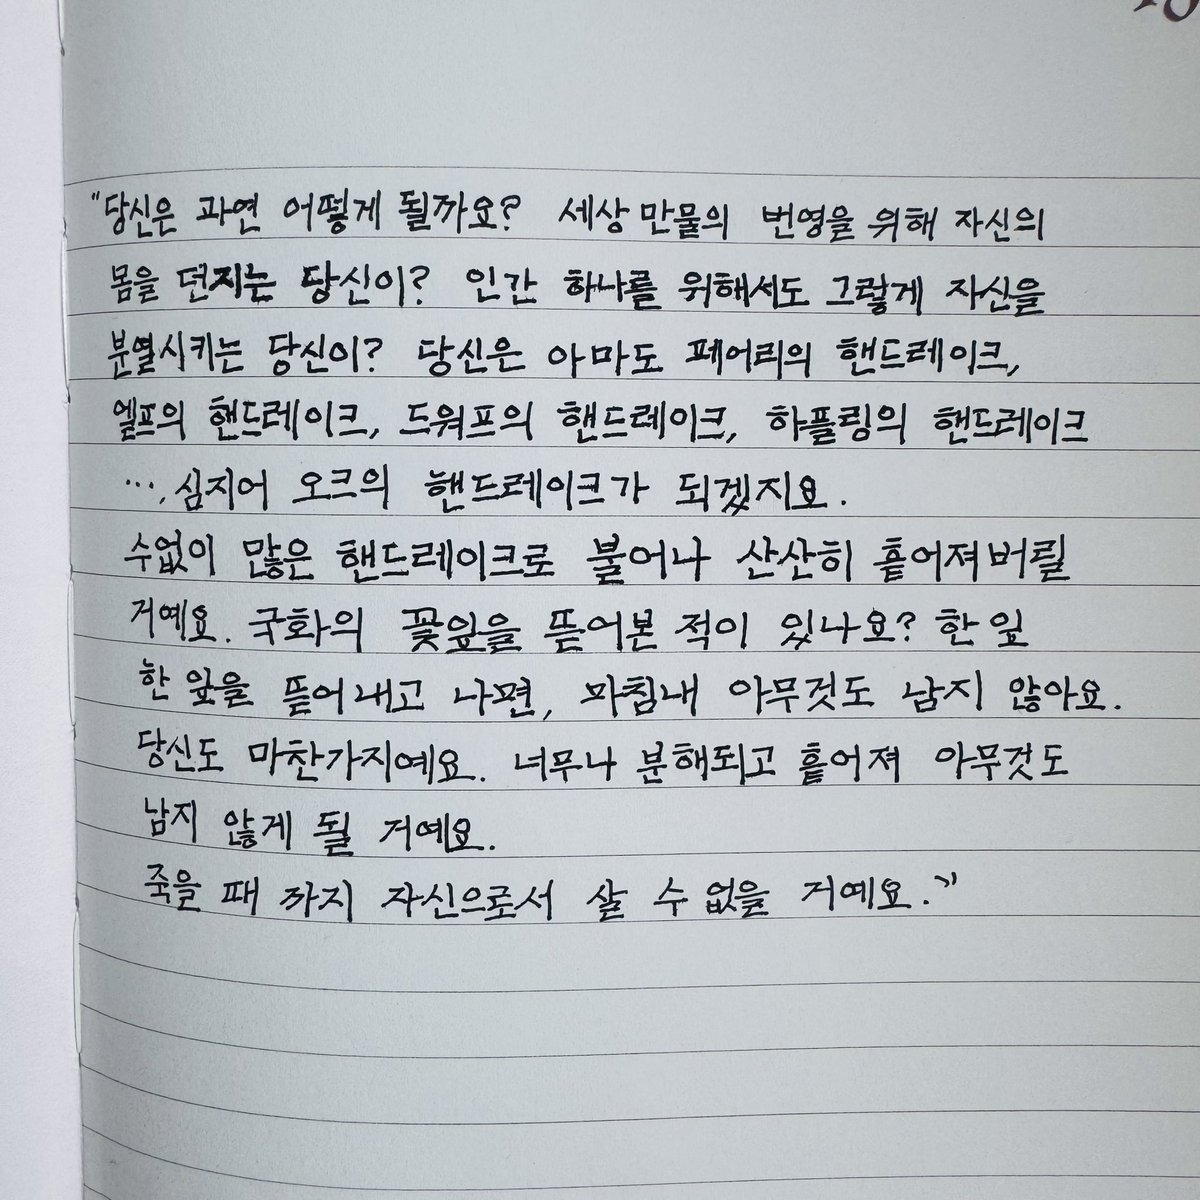 "당신은 과연 어떻게 될까요? 세상 만물의 번영을 위해 자신의
몸을 던지는 당신이? 인간 하나를 위해서도 그렇게 자신을
분열시키는 당신이? 당신은 아마도 페어리의 핸드레이크,
엘프의 핸드레이크, 드워프의 핸드레이크, 하플링의 핸드레이크
…, 심지어 오크의 핸드레이크가 되겠지요.
수없이 많은 핸드레이크로 불어나 산산히 흩어져버릴
거예요. 국화의 꽃잎을 뜯어본 적이 있나요? 한 잎
한 잎을 뜯어내고 나면, 마침내 아무것도 남지 않아요.
당신도 마찬가지예요. 너무나 분해되고 흩어져 아무것도
남지 않게 될 거예요.
죽을 때 까지 자신으로서 살 수 없을 거예요."